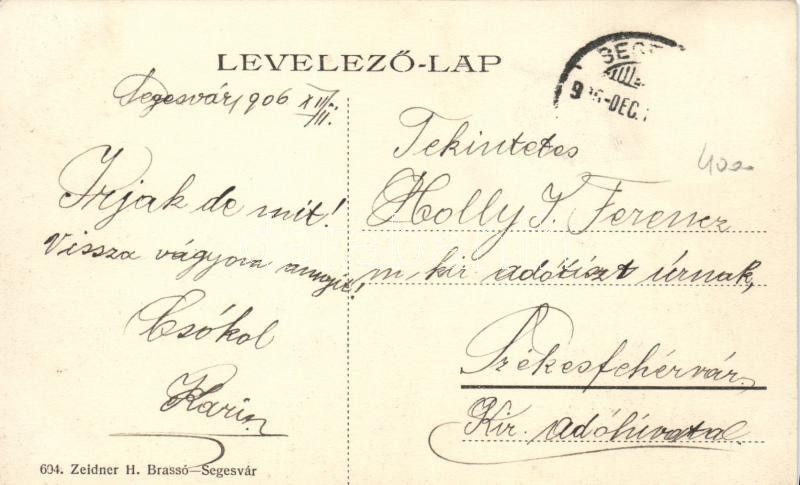 LEVELEZŐ-LAP
Segesvár, 906 XII/II.
Irjak de mit!
Vissza vágyom annyit!
Csókol
Karin
694. Zeidner H. Brassó—Segesvár
SEGE
906-DEC.
400
Tekintetes
Holly J. Ferencz
m kir adótiszt úrnak,
Székesfehérvár.
Kir. adóhivatal